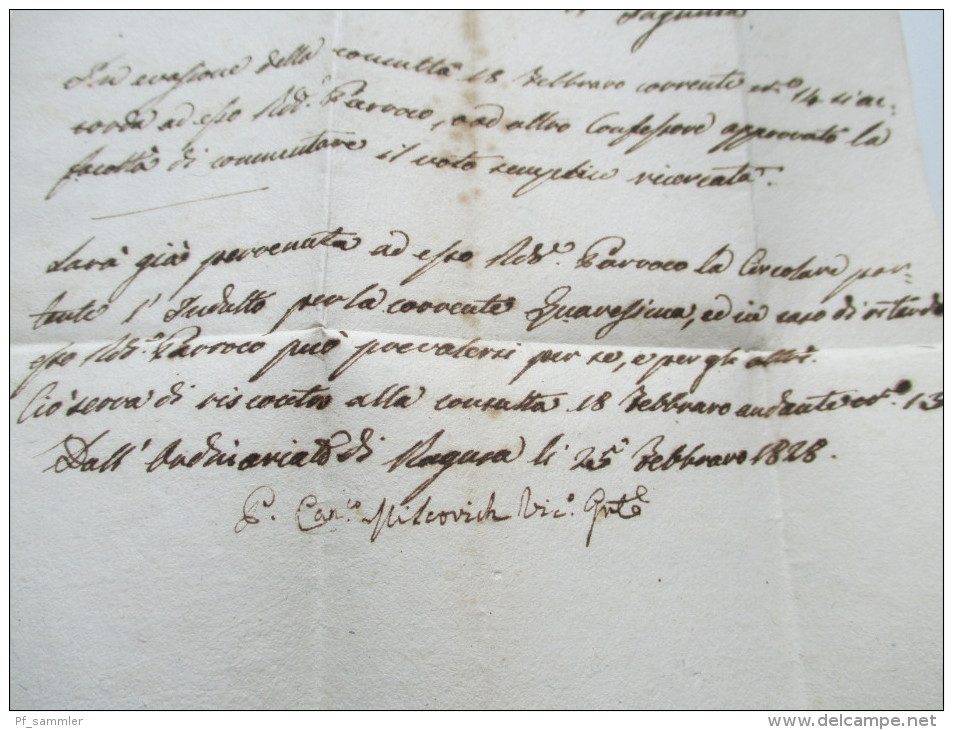 In evasione della consulta 18 Febbraro corrente N.º 14 si ac-
corda ad esso Rdo. Parroco, o ad altro Confessore approvato la
facoltà di commutare il voto semplice ricercata.
Sarà già pervenuta ad esso Rdo. Parroco la Circolare por-
tante l'Indulto per la corrente Quaresima, ed in caso di ritardo
esso Rdo. Parroco può prevalersi per se, e per gli altri.
Ciò serva di riscontro alla consulta 18 Febbraro andante N.º 13
Dall' Ordinariato di Ragusa li 25 Febbraro 1828.
P. Can.co Milcovich Vic.º Gnle
Pf_sammler
www.delcampe.net